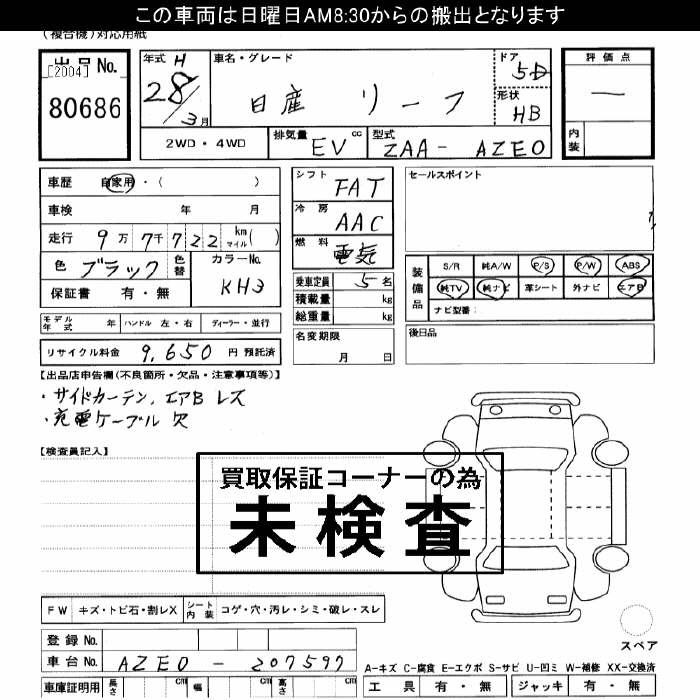 この車両は日曜日AM8:30からの搬出となります
(複合機)対応用紙
出品No.
[2004]
80686
年式 H
28/3月
車名・グレード
日産 リーフ
ドア
5D
形状
HB
評価点
—
内装
2WD・4WD
排気量 EV cc
型式 ZAA-AZE0
車歴 自家用・( )
車検 年 月
走行 9万7千722 km マイル( )
色 ブラック 色替
カラーNo.
KH3
保証書 有・無
シフト FAT
冷房 AAC
燃料 電気
乗車定員 5名
積載量 kg
総重量 kg
セールスポイント
装備品
S/R 純A/W P/S P/W ABS
純TV 純ナビ 革シート 外ナビ エアB
ナビ型番:
モデル年式 年 ハンドル 左・右 ディーラー・並行
名変期限
月 日
後日品
リサイクル料金 9,650 円 預託済
【出品店申告欄(不良箇所・欠品・注意事項等)】
・サイドカーテン、エアB レス
・充電ケーブル 欠
【検査員記入】
買取保証コーナーの為
未検査
FW キズ・トビ石・割レX シート内装 コゲ・穴・汚レ・シミ・破レ・スレ
登録No.
車台No. AZE0-207597
車庫証明用 長さ cm 幅 cm 高さ cm
スペア
A-キズ C-腐食 E-エクボ S-サビ U-凹ミ W-補修 XX-交換済
工具 有・無 ジャッキ 有・無